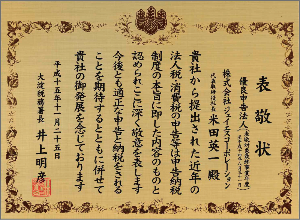 表敬状
優良申告法人
株式会社ジェイエスコーポレーション
代表取締役社長 米田英一殿
貴社から提出された近年の
法人税・消費税の申告等は申告納税
制度の趣旨に即した内容のものと
認められここに深く敬意を表します
今後とも適正な申告と納税をされる
ことを期待するとともに併せて
貴社の御発展を念じております
平成十五年十一月二十五日
大淀税務署長 井上明彦